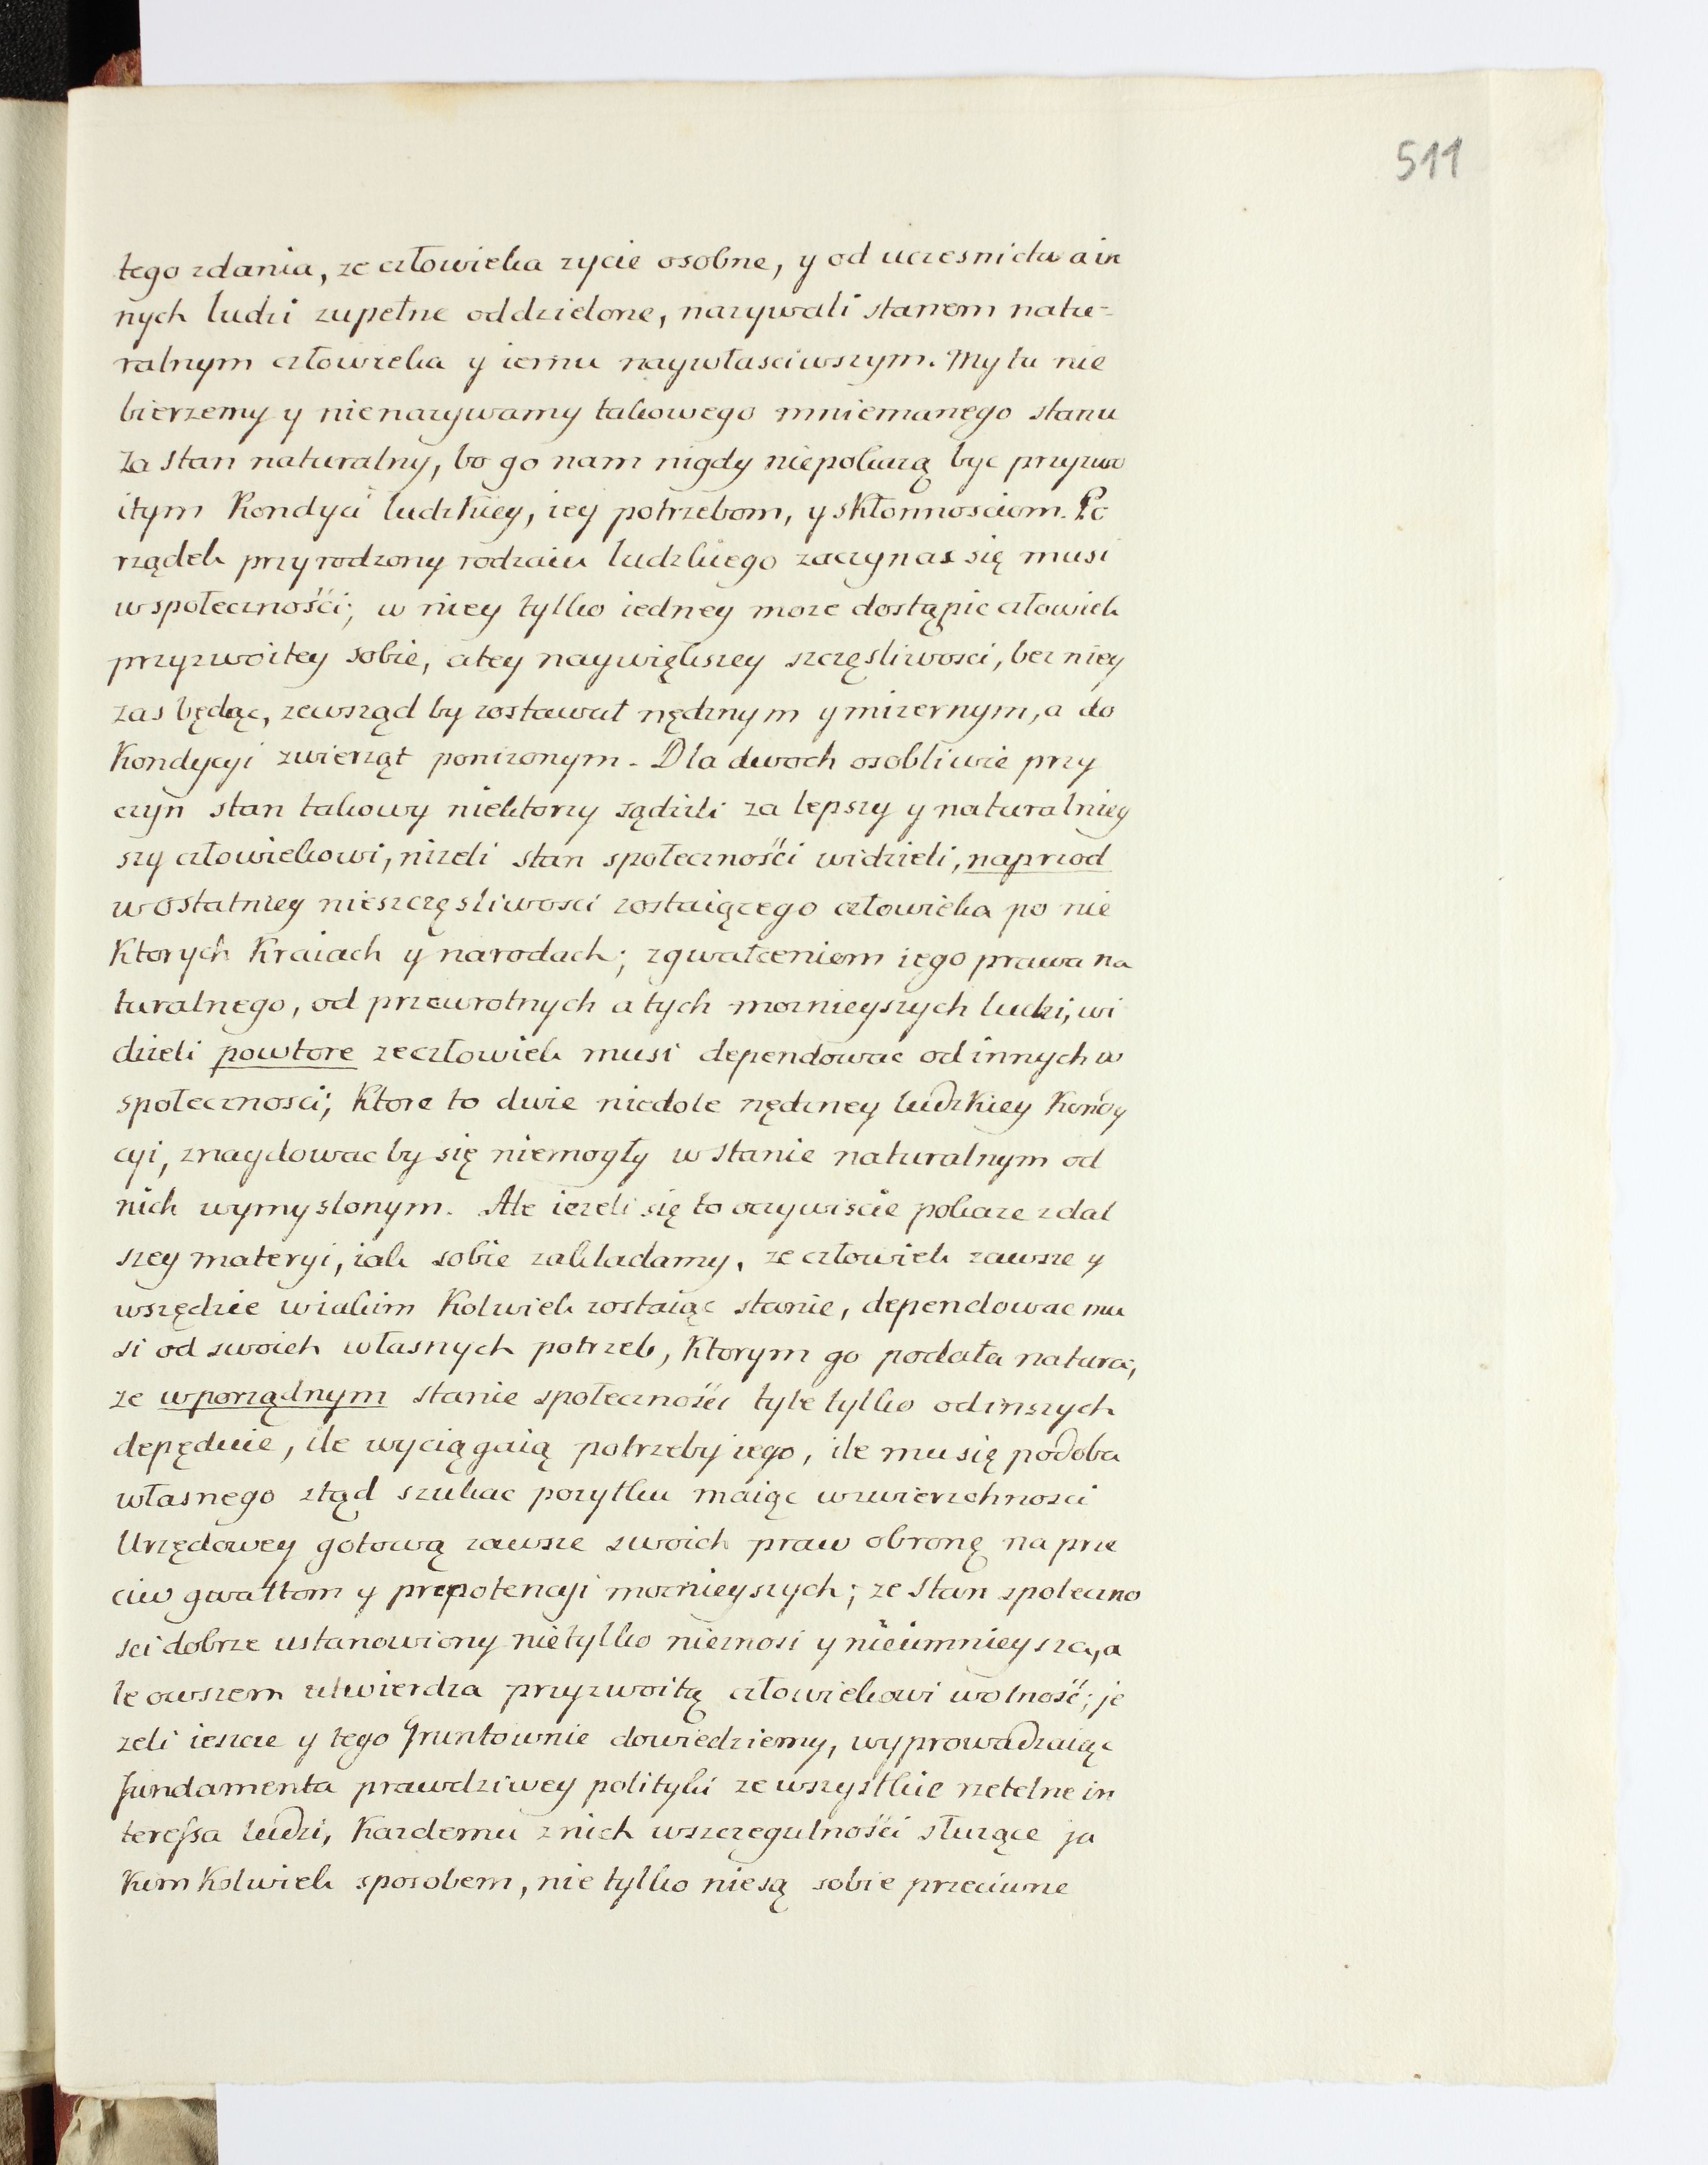 511
tego zdania, ze człowieka zycie osobne, y od uczesnictwa in
nych ludzi zupełne oddzielone, nazywali stanem natu-
ralnym człowieka y iemu naywłasciwszym. My tu nie
bierzemy y nienazywamy takowego mniemanego stanu
za stan naturalny, bo go nam nigdy niepokazą byc przyzwo
itym Kondyci ludzkiey, iey potrzebom, y skłonnosciom. Po
rządek przyrodzony rodzaiu ludzkiego zaczynas się musi
w społecznośći; w niey tylko iedney moze dostąpic człowiek
przyzwoitey sobie, a tey naywiększey szczęsliwosci, bez niey
zas będąc, zewsząd by zostawał nędznym y mizernym, a do
Kondycyi zwierząt ponizonym. Dla dwoch osobliwie przy
czyn stan takowy niektorzy sądzili za lepszy y naturalniey
szy człowiekowi, nizeli stan społecznośći widzieli, naprzod
w ostatniey nieszczęsliwosci zostaiącego człowieka po nie
Ktorych Kraiach y narodach; zgwałceniem iego prawa na
turalnego, od przewrotnych a tych mocnieyszych ludzi, wi
dzieli powtore ze człowiek musi dependowac od innych w
społecznosci; Ktore to dwie niedole nędzney ludzkiey Kondy
cyi, znaydowac by się niemogły w stanie naturalnym od
nich wymyslonym. Ale iezeli się to oczywiscie pokaze z dal
szey materyi, iak sobie zakładamy, ze człowiek zawsze y
wszędzie wiakim Kolwiek zostaiąc stanie, dependowac mu
si od swoich własnych potrzeb, Ktorym go podała natura;
ze w porządnym stanie społecznośći tyle tylko od inszych
depęduie, ile wyciągaią potrzeby iego, ile mu się podoba
własnego ztąd szukac pozytku maiąc w zwierzchnosci
Urzędowey gotową zawsze swoich praw obronę na prze
ciw gwałtom y prepotencyi mocnieyszych; ze stan społeczno
sci dobrze ustanowiony nietylko nieznosi y nieumnieysza, a
le owszem utwierdza przyzwoitą człowiekowi wolność; je
zeli ieszcze y tego gruntownie dowiedziemy, wyprowadzaiąc
fundamenta prawdziwey polityki ze wszystkie rzetelne in
teressa ludzi, Kazdemu z nich wszczegulnośći słuzące ja
Kim Kolwiek sposobem, nie tylko niesą sobie przeciwne